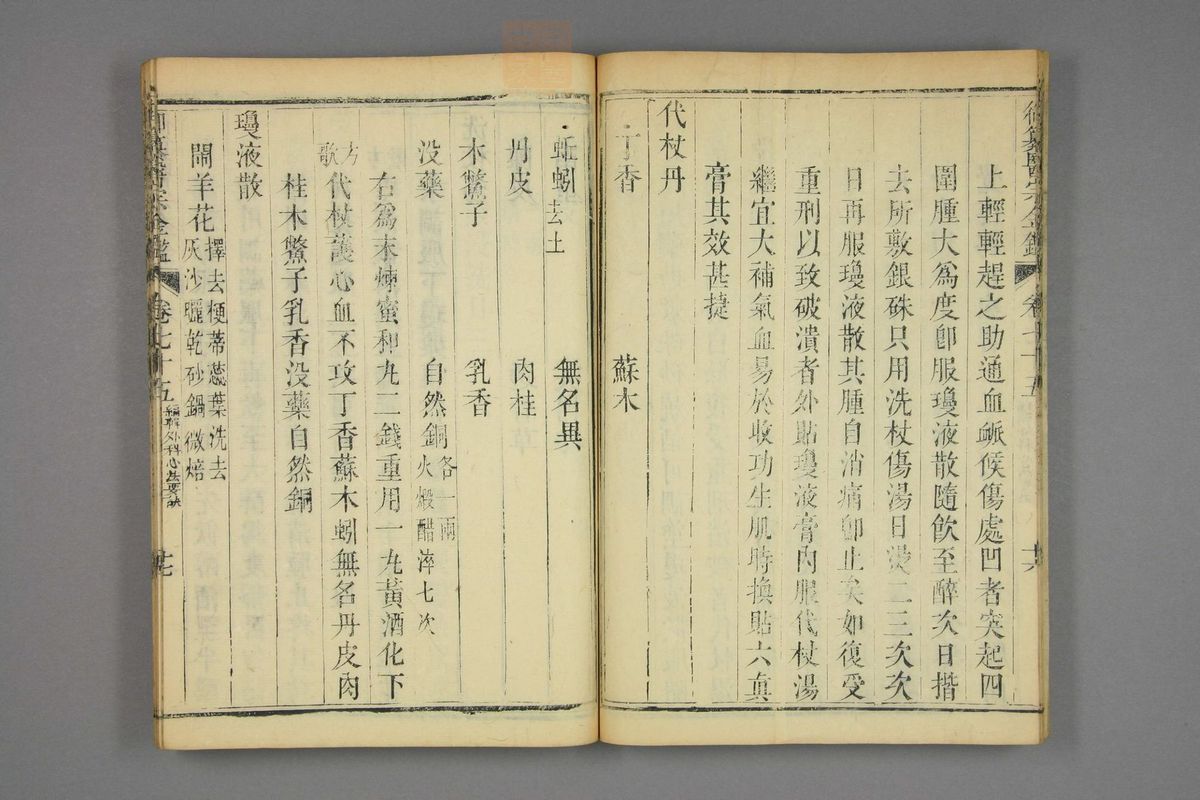 御纂醫宗金鑑 卷七十五 十六
上輕輕趕之助通血脈候傷處凹者突起四
圍腫大為度卽服瓊液散隨飲至醉次日揩
去所敷銀硃只用洗杖傷湯日燙二三次次
日再服瓊液散其腫自消痛卽止矣如復受
重刑以致破潰者外貼瓊液膏內服代杖湯
繼宜大補氣血易於收功生肌時換貼六真
膏其效甚捷
代杖丹
丁香 蘇木
蚯蚓去土 無名異
丹皮 肉桂
木鱉子 乳香
沒藥 自然銅火煅醋淬七次 各一兩
右為末煉蜜和丸二錢重用一丸黃酒化下
方歌 代杖護心血不攻丁香蘇木蚓無名丹皮肉
桂木鱉子乳香沒藥自然銅
瓊液散
鬧羊花擇去梗蒂蕊葉洗去灰沙曬乾砂鍋微焙
御纂醫宗金鑑 卷七十五 編輯外科心法要訣 十七